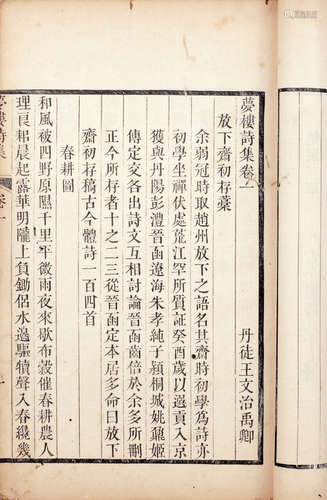 夢樓詩集卷一
丹徒王文治禹卿
放下齋初存藁
余弱冠時取趙州放下之語名其齋時初學為詩亦
初學坐禪伏處荒江罕所質証癸酉歲以選貢入京
獲與丹陽彭澧晉函遼海朱孝純子穎桐城姚鼐姬
傳定交各出詩文互相討論晉函齒倍於余多所刪
正今所存者十之二三從晉函定本居多命曰放下
齋初存稿古今體詩一百四首
春耕圖
和風被四野原隰千里平微雨夜來歇布穀催春耕農人
理良耜晨起露華明隴上負鋤侶水邊驅犢聲入春纔幾
夢樓詩集 卷一